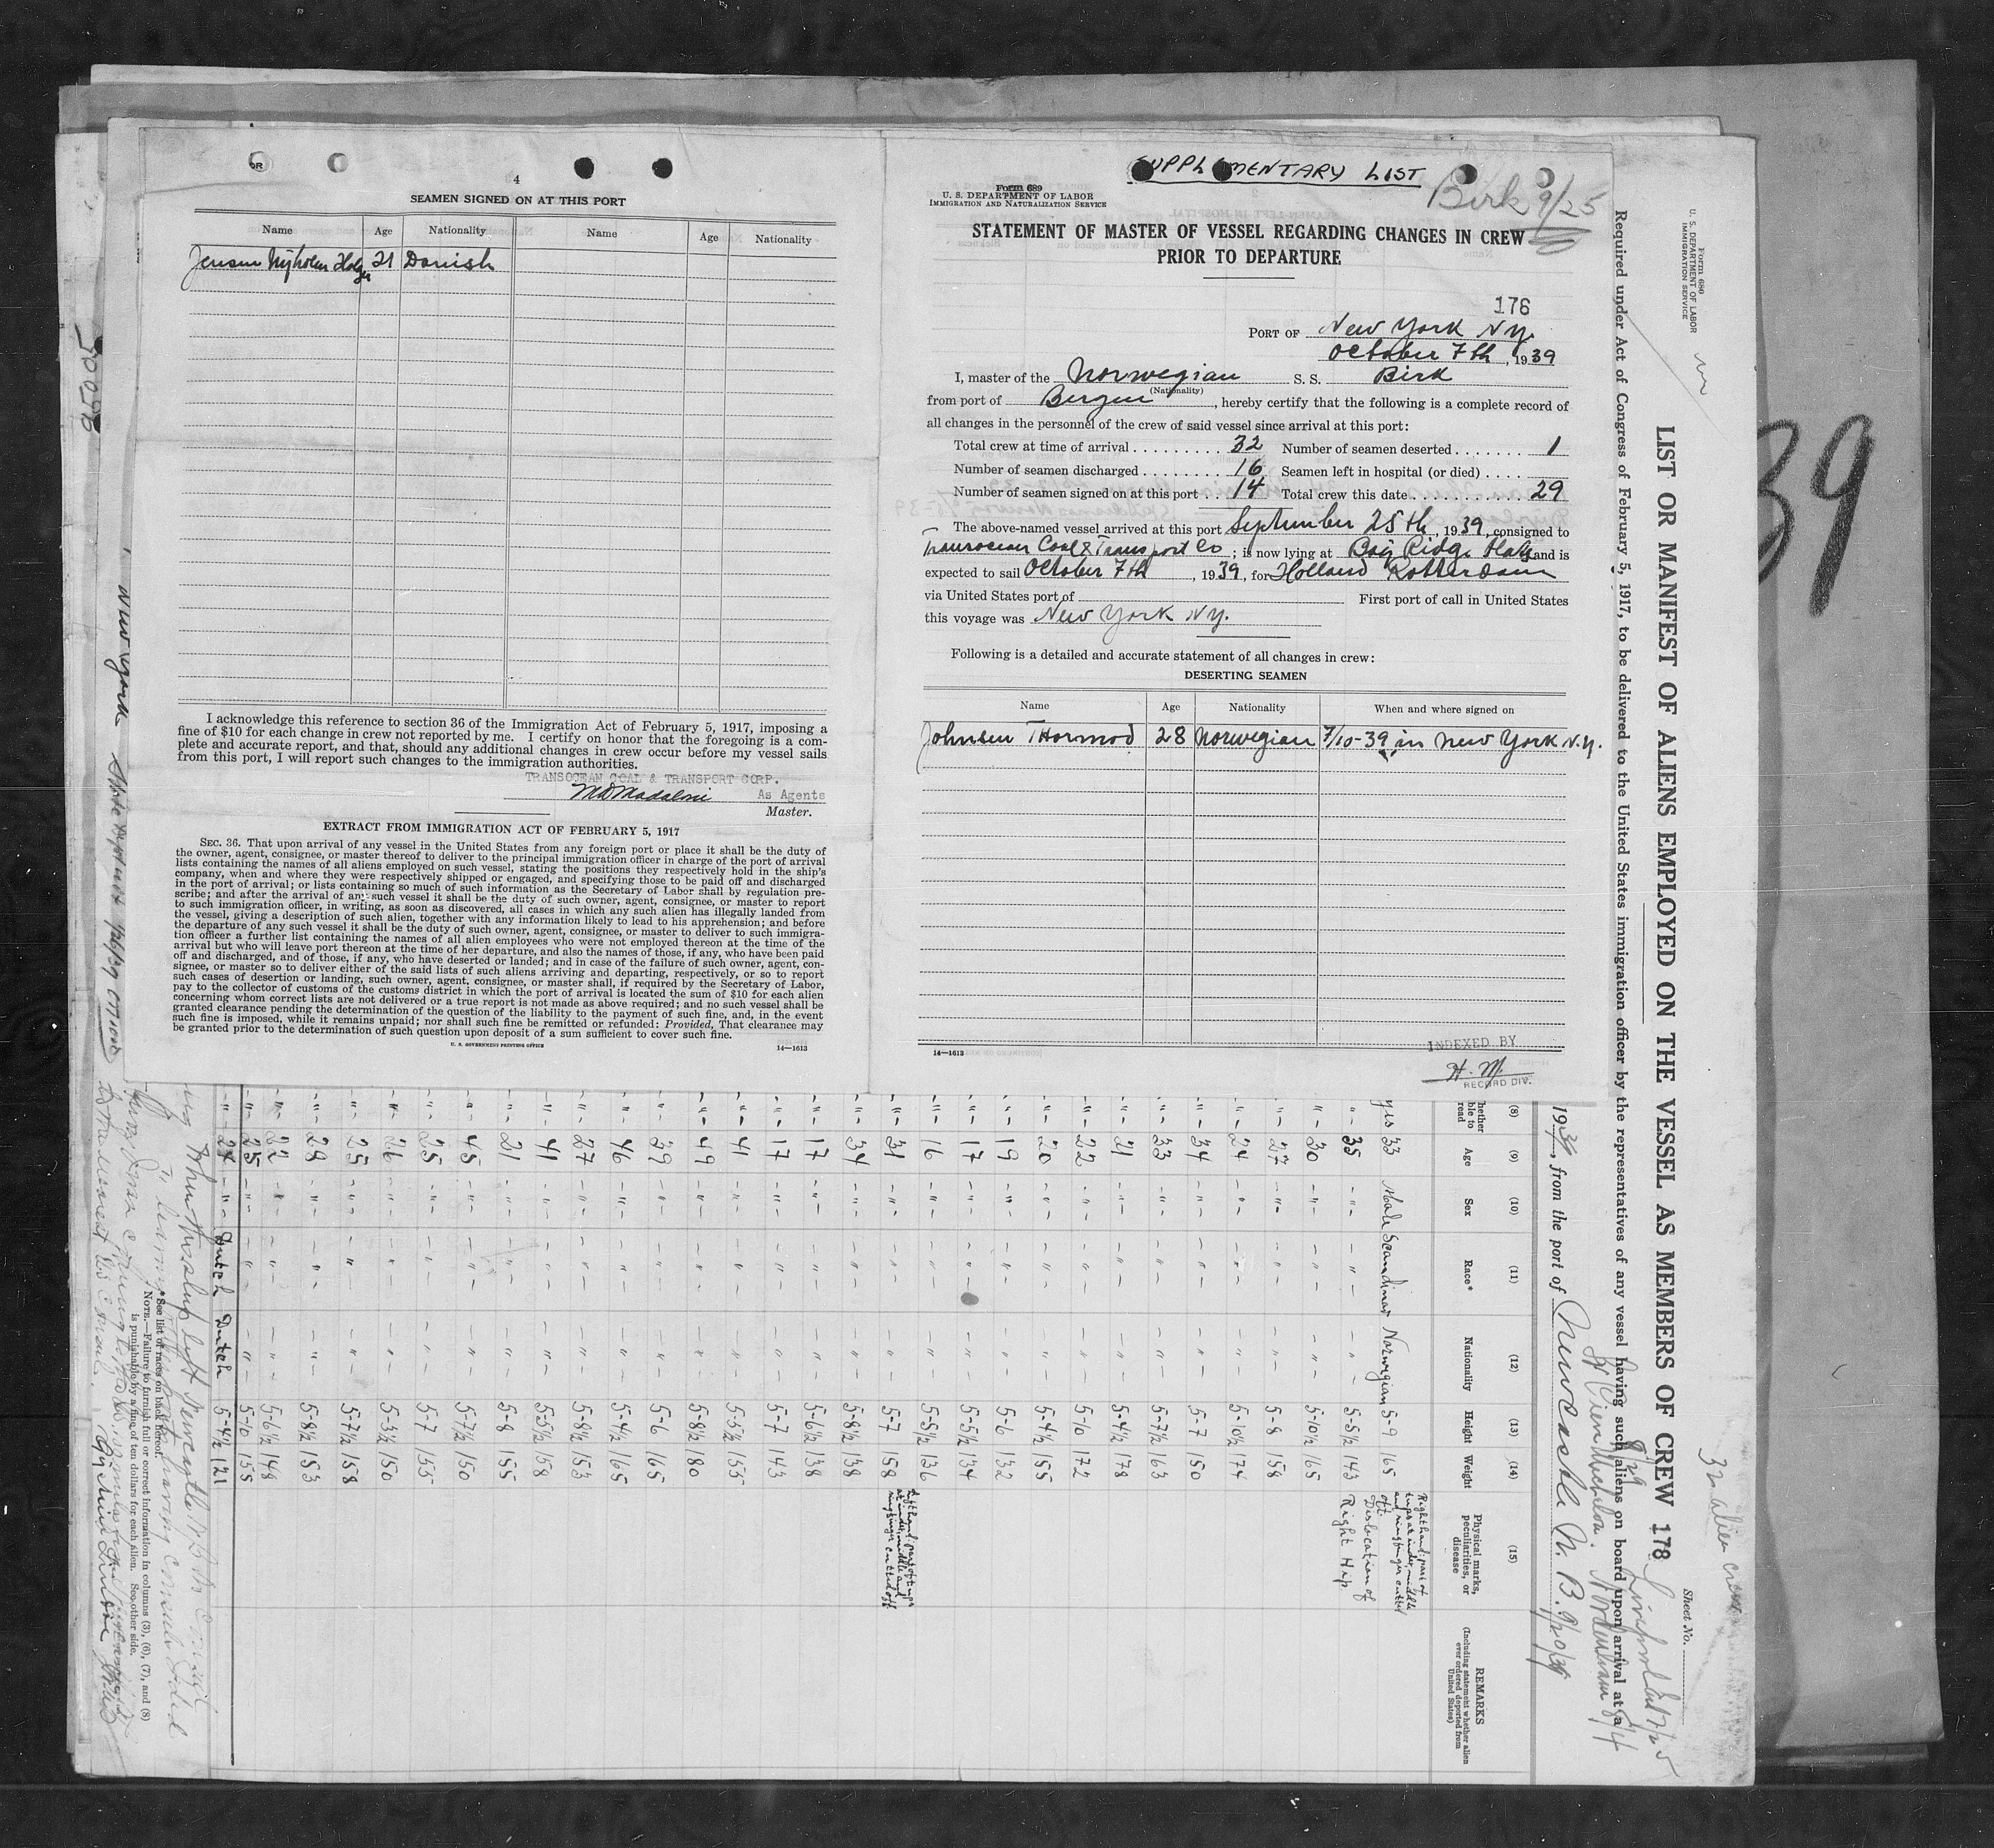 SUPPLEMENTARY LIST
Birk 9/25
Form 689
U. S. DEPARTMENT OF LABOR
IMMIGRATION AND NATURALIZATION SERVICE
STATEMENT OF MASTER OF VESSEL REGARDING CHANGES IN CREW
PRIOR TO DEPARTURE
176
PORT OF New York N.Y.
October 7th, 1939
I, master of the Norwegian S. S. Birk
(Nationality)
from port of Bergen, hereby certify that the following is a complete record of
all changes in the personnel of the crew of said vessel since arrival at this port:
Total crew at time of arrival ......... 32 Number of seamen deserted ........ 1
Number of seamen discharged ........ 16 Seamen left in hospital (or died) ....
Number of seamen signed on at this port .. 14 Total crew this date ........... 29
The above-named vessel arrived at this port September 25th, 1939, consigned to
Transocean Coal & Transport Co; is now lying at Bay Ridge Flats and is
expected to sail October 7th, 1939, for Holland Rotterdam
via United States port of First port of call in United States
this voyage was New York N.Y.
Following is a detailed and accurate statement of all changes in crew:
DESERTING SEAMEN
Name Age Nationality When and where signed on
Johnsen Thormod 28 Norwegian 7/10-39 in New York N.Y.
14—1613
INDEXED BY
H. M.
RECORD DIV.
OR
4
SEAMEN SIGNED ON AT THIS PORT
Name Age Nationality Name Age Nationality
Jensen Nyholm Holger 21 Danish
I acknowledge this reference to section 36 of the Immigration Act of February 5, 1917, imposing a
fine of $10 for each change in crew not reported by me. I certify on honor that the foregoing is a com-
plete and accurate report, and that, should any additional changes in crew occur before my vessel sails
from this port, I will report such changes to the immigration authorities.
TRANSOCEAN COAL & TRANSPORT CORP.
As Agents
Master.
EXTRACT FROM IMMIGRATION ACT OF FEBRUARY 5, 1917
SEC. 36. That upon arrival of any vessel in the United States from any foreign port or place it shall be the duty of
the owner, agent, consignee, or master thereof to deliver to the principal immigration officer in charge of the port of arrival
lists containing the names of all aliens employed on such vessel, stating the positions they respectively hold in the ship's
company, when and where they were respectively shipped or engaged, and specifying those to be paid off and discharged
in the port of arrival; or lists containing so much of such information as the Secretary of Labor shall by regulation pre-
scribe; and after the arrival of any such vessel it shall be the duty of such owner, agent, consignee, or master to report
to such immigration officer, in writing, as soon as discovered, all cases in which any such alien has illegally landed from
the vessel, giving a description of such alien, together with any information likely to lead to his apprehension; and before
the departure of any such vessel it shall be the duty of such owner, agent, consignee, or master to deliver to such immigra-
tion officer a further list containing the names of all alien employees who were not employed thereon at the time of the
arrival but who will leave port thereon at the time of her departure, and also the names of those, if any, who have been paid
off and discharged, and of those, if any, who have deserted or landed; and in case of the failure of such owner, agent, con-
signee, or master so to deliver either of the said lists of such aliens arriving and departing, respectively, or so to report
such cases of desertion or landing, such owner, agent, consignee, or master shall, if required by the Secretary of Labor,
pay to the collector of customs of the customs district in which the port of arrival is located the sum of $10 for each alien
concerning whom correct lists are not delivered or a true report is not made as above required; and no such vessel shall be
granted clearance pending the determination of the question of the liability to the payment of such fine, and, in the event
such fine is imposed, while it remains unpaid; nor shall such fine be remitted or refunded: Provided, That clearance may
be granted prior to the determination of such question upon deposit of a sum sufficient to cover such fine.
U. S. GOVERNMENT PRINTING OFFICE
14—1613
39
Form 680
U. S. DEPARTMENT OF LABOR
IMMIGRATION SERVICE
Sheet No.
32 alien crew
LIST OR MANIFEST OF ALIENS EMPLOYED ON THE VESSEL AS MEMBERS OF CREW 178
Required under Act of Congress of February 5, 1917, to be delivered to the United States immigration officer by the representatives of any vessel having such aliens on board upon arrival at a
from the port of Newcastle N. B. 9/20/39
(8) (9) (10) (11) (12) (13) (14) (15)
Age Sex Race* Nationality Height Weight Physical marks, peculiarities, or disease REMARKS
(Including statement whether alien ever ordered deported from United States)
yes 33 Male Scandinav Norwegian 5-9 165
35 5-5½ 143 Dislocation of Right Hip
30 5-10½ 165
27 5-8 158
24 5-10½ 174
34 5-7 150
33 5-7½ 163
21 5-4½ 178
22 5-10 172
20 5-4½ 155
19 5-6 132
17 5-5½ 134
16 5-5½ 136
31 5-7 158
34 5-8½ 138
17 5-6½ 138
17 5-7 143
41 5-5½ 155
49 5-8½ 180
39 5-6 165
46 5-4½ 165
27 5-8½ 153
41 5-5½ 158
21 5-8 155
45 5-7½ 150
25 5-7 155
26 5-3½ 150
25 5-7½ 158
28 5-8½ 153
22 5-6½ 148
25 5-10 155
24 Dutch Dutch 5-4½ 121
*See list of races on back hereof.
NOTE.—Failure to furnish full or correct information in columns (3), (6), (7), and (8)
is punishable by a fine of ten dollars for each alien. See other side.
New York